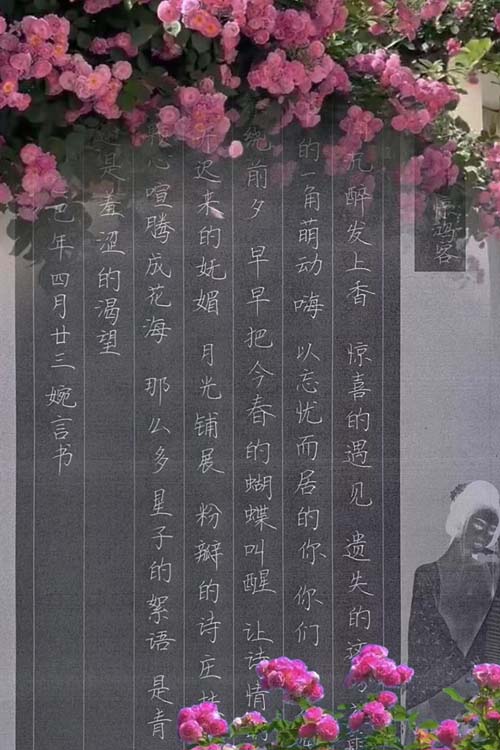 鸿客
沉醉发上香 惊喜的遇见 遗失的这
的一角萌动 嗨 以忘忧而居的你 你们
绕前夕 早早把今春的蝴蝶叫醒 让诗情
开迟来的妩媚 月光铺展 粉瓣的诗庄
心喧腾成花海 那么多 星子的絮语 是青
是羞涩的渴望
巳年四月廿三婉言书